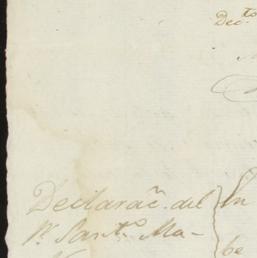 Dec.to
Declarac̃. del
Pr. Sant.o Ma-
{ En
be